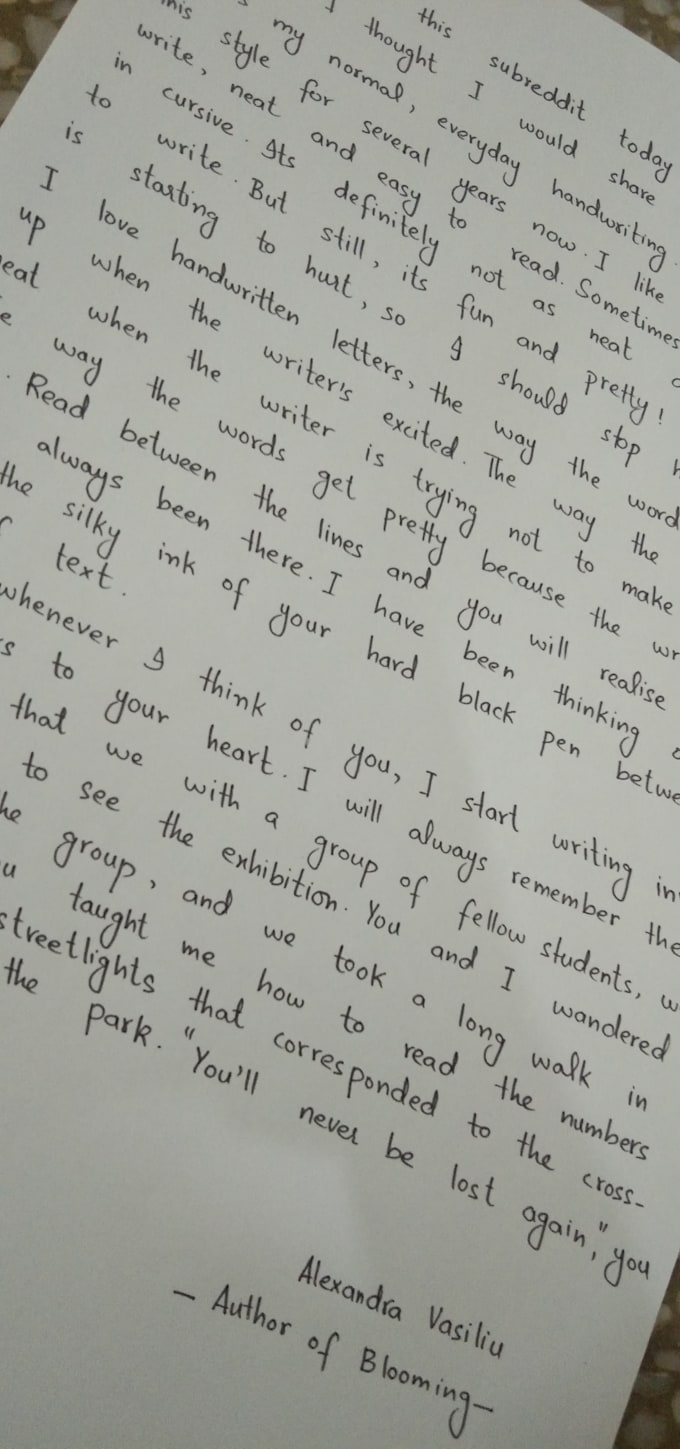 this subreddit today
I thought I would share
my normal, everyday handwriting.
this style for several years now. I like
write, neat and easy to read. Sometimes
in cursive. Its definitely not as neat
to write. But still, its fun and pretty!
is starting to hurt, so I should stop
I love handwritten letters, the way the word
up when the writer's excited. The way the
eat when the writer is trying not to make
way the words get pretty because the wr
. Read between the lines and you will realise
always been there. I have been thinking
the silky ink of your hard black pen betwe
text.
whenever I think of you, I start writing in
s to your heart. I will always remember the
that we with a group of fellow students, w
to see the exhibition. You and I wandered
he group, and we took a long walk in
u taught me how to read the numbers
streetlights that corresponded to the cross-
the park. "You'll never be lost again," you
Alexandra Vasiliu
— Author of Blooming—